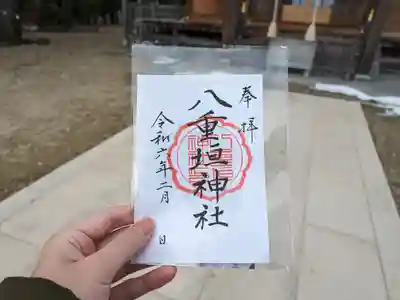 奉拝
八重垣神社
令和六年二月 日